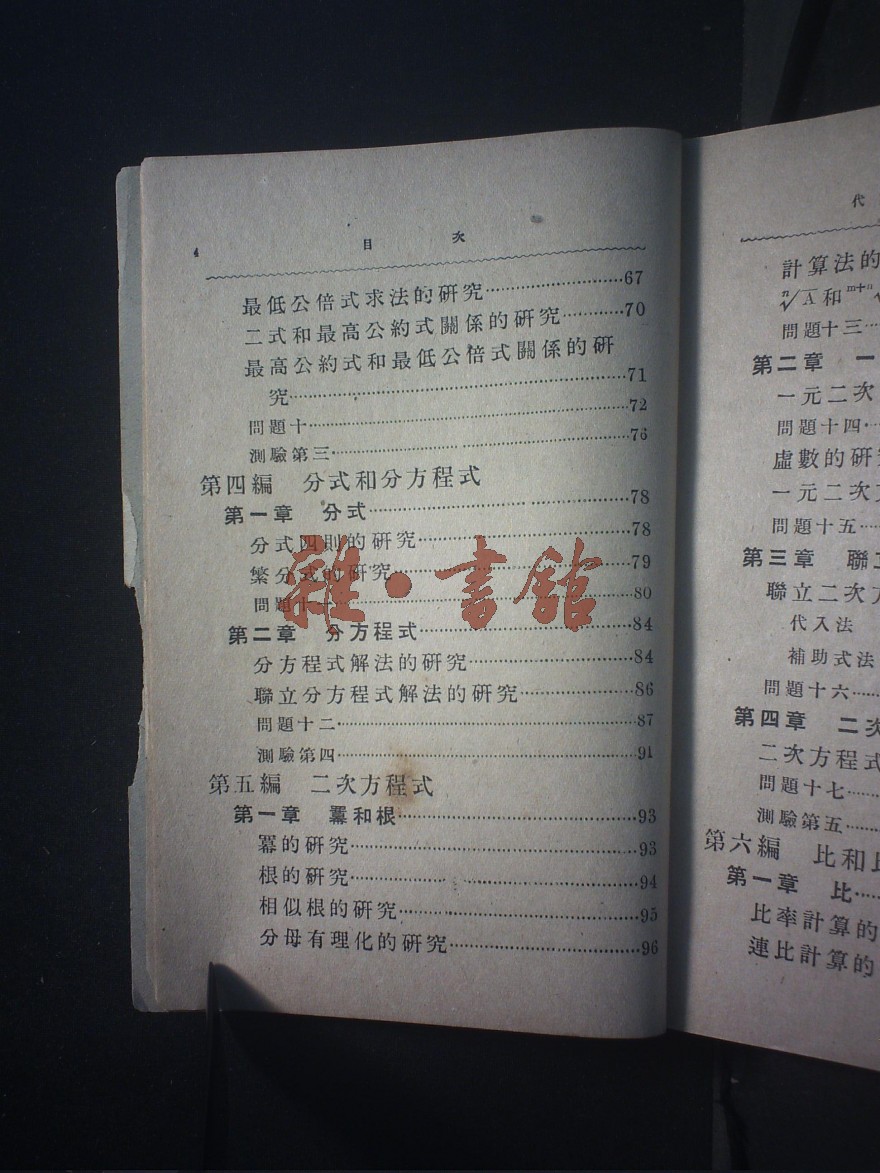 4 目次
最低公倍式求法的研究……………67
二式和最高公約式關係的研究…………70
最高公約式和最低公倍式關係的研
究……………………………………71
問題十……………………………………72
測驗第三…………………………………76
第四編 分式和分方程式
第一章 分式……………………………78
分式四則的研究…………………………78
繁分式的研究……………………………79
問題十一…………………………………80
第二章 分方程式………………………84
分方程式解法的研究……………………84
聯立分方程式解法的研究………………86
問題十二…………………………………87
測驗第四…………………………………91
第五編 二次方程式
第一章 羃和根…………………………93
羃的研究…………………………………93
根的研究…………………………………94
相似根的研究……………………………95
分母有理化的研究………………………96
雜·書館
代
計算法的
ⁿ√A和ᵐ⁺ⁿ√
問題十三……
第二章 一
一元二次
問題十四……
虛數的研
一元二次
問題十五……
第三章 聯
聯立二次
代入法
補助式法
問題十六……
第四章 二次
二次方程式
問題十七……
測驗第五……
第六編 比和
第一章 比……
比率計算的
連比計算的